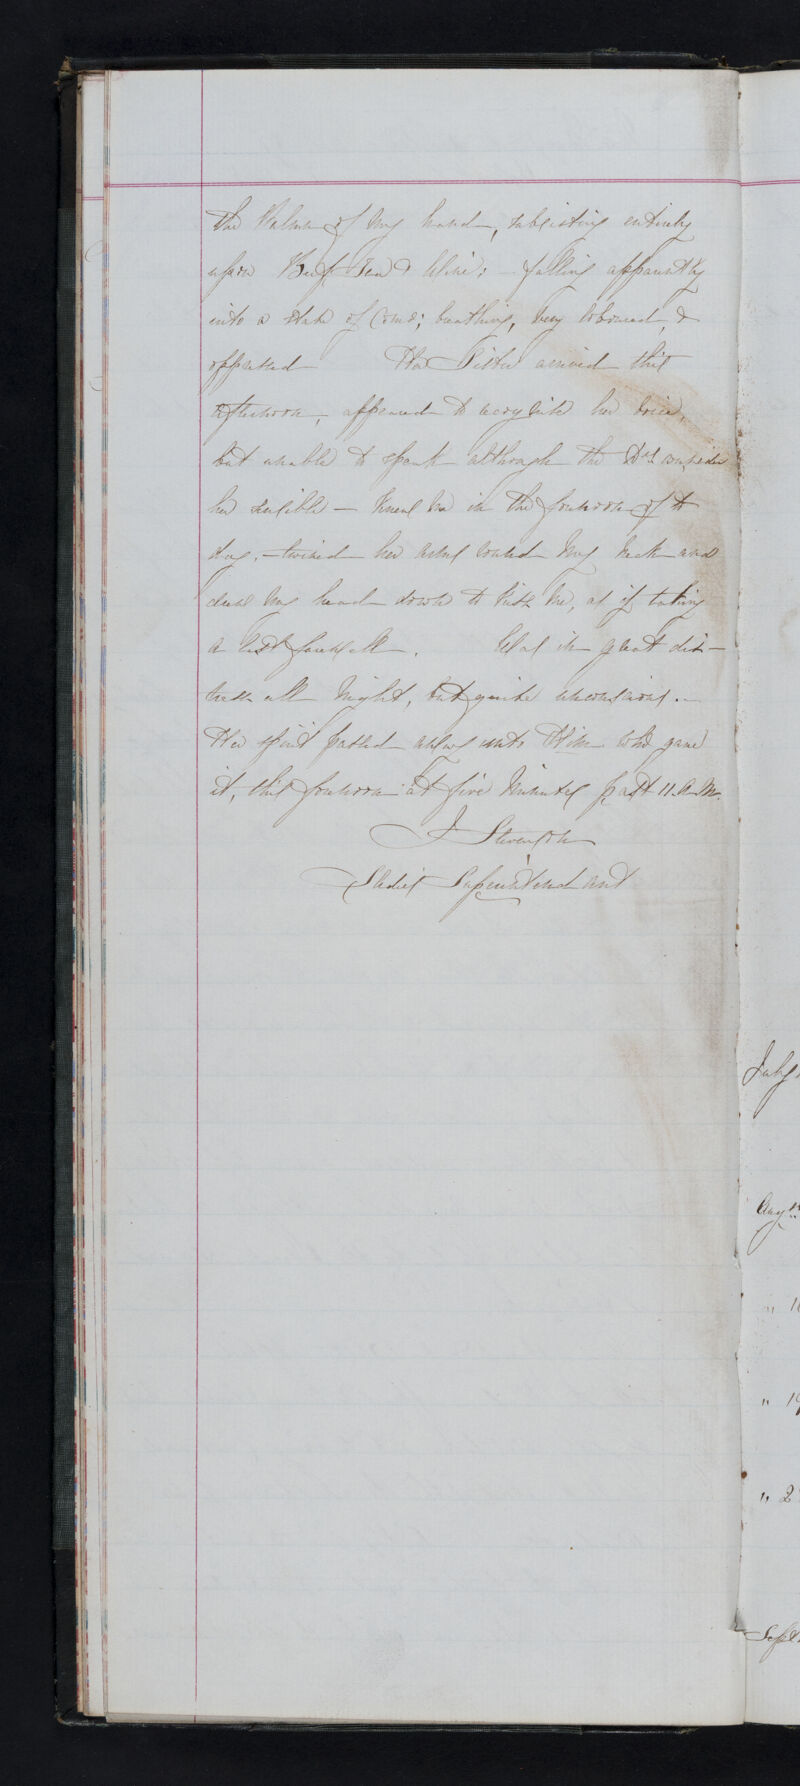 the Palm of my hand, subsisting entirely
upon Beef Tea & Wine; – falling apparently
into a state of Coma; breathing, very labored, &
oppressed Her Sister arrived this
afternoon, appeared to recognize her voice,
but unable to speak although the Drs consider
her sensible – Knew me in the forenoon of to
day, – twined her arms round my neck and
drew my head down to kiss me, as if taking
a last farewell. Was in great dis-
tress all Night, but quite unconscious. –
Her spirit passed away unto Him who gave
it, this forenoon at five Minutes past 11. A.M.
J Stevenson
Ladies Superintendant
July
Aug
" 1
" 19
" 2
Sept